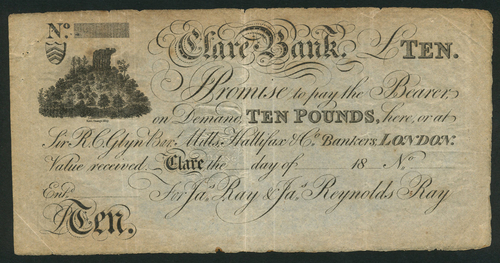 No.
Clare Bank. £ TEN.
I Promise to pay the Bearer,
on Demand TEN POUNDS, here, or at
Sir R.C. Glyn Bart. Mills, Hallifax & Co. Bankers LONDON.
Value received. Clare the day of 18 No
Entd.
For Jas. Ray & Jas. Reynolds Ray
£Ten.